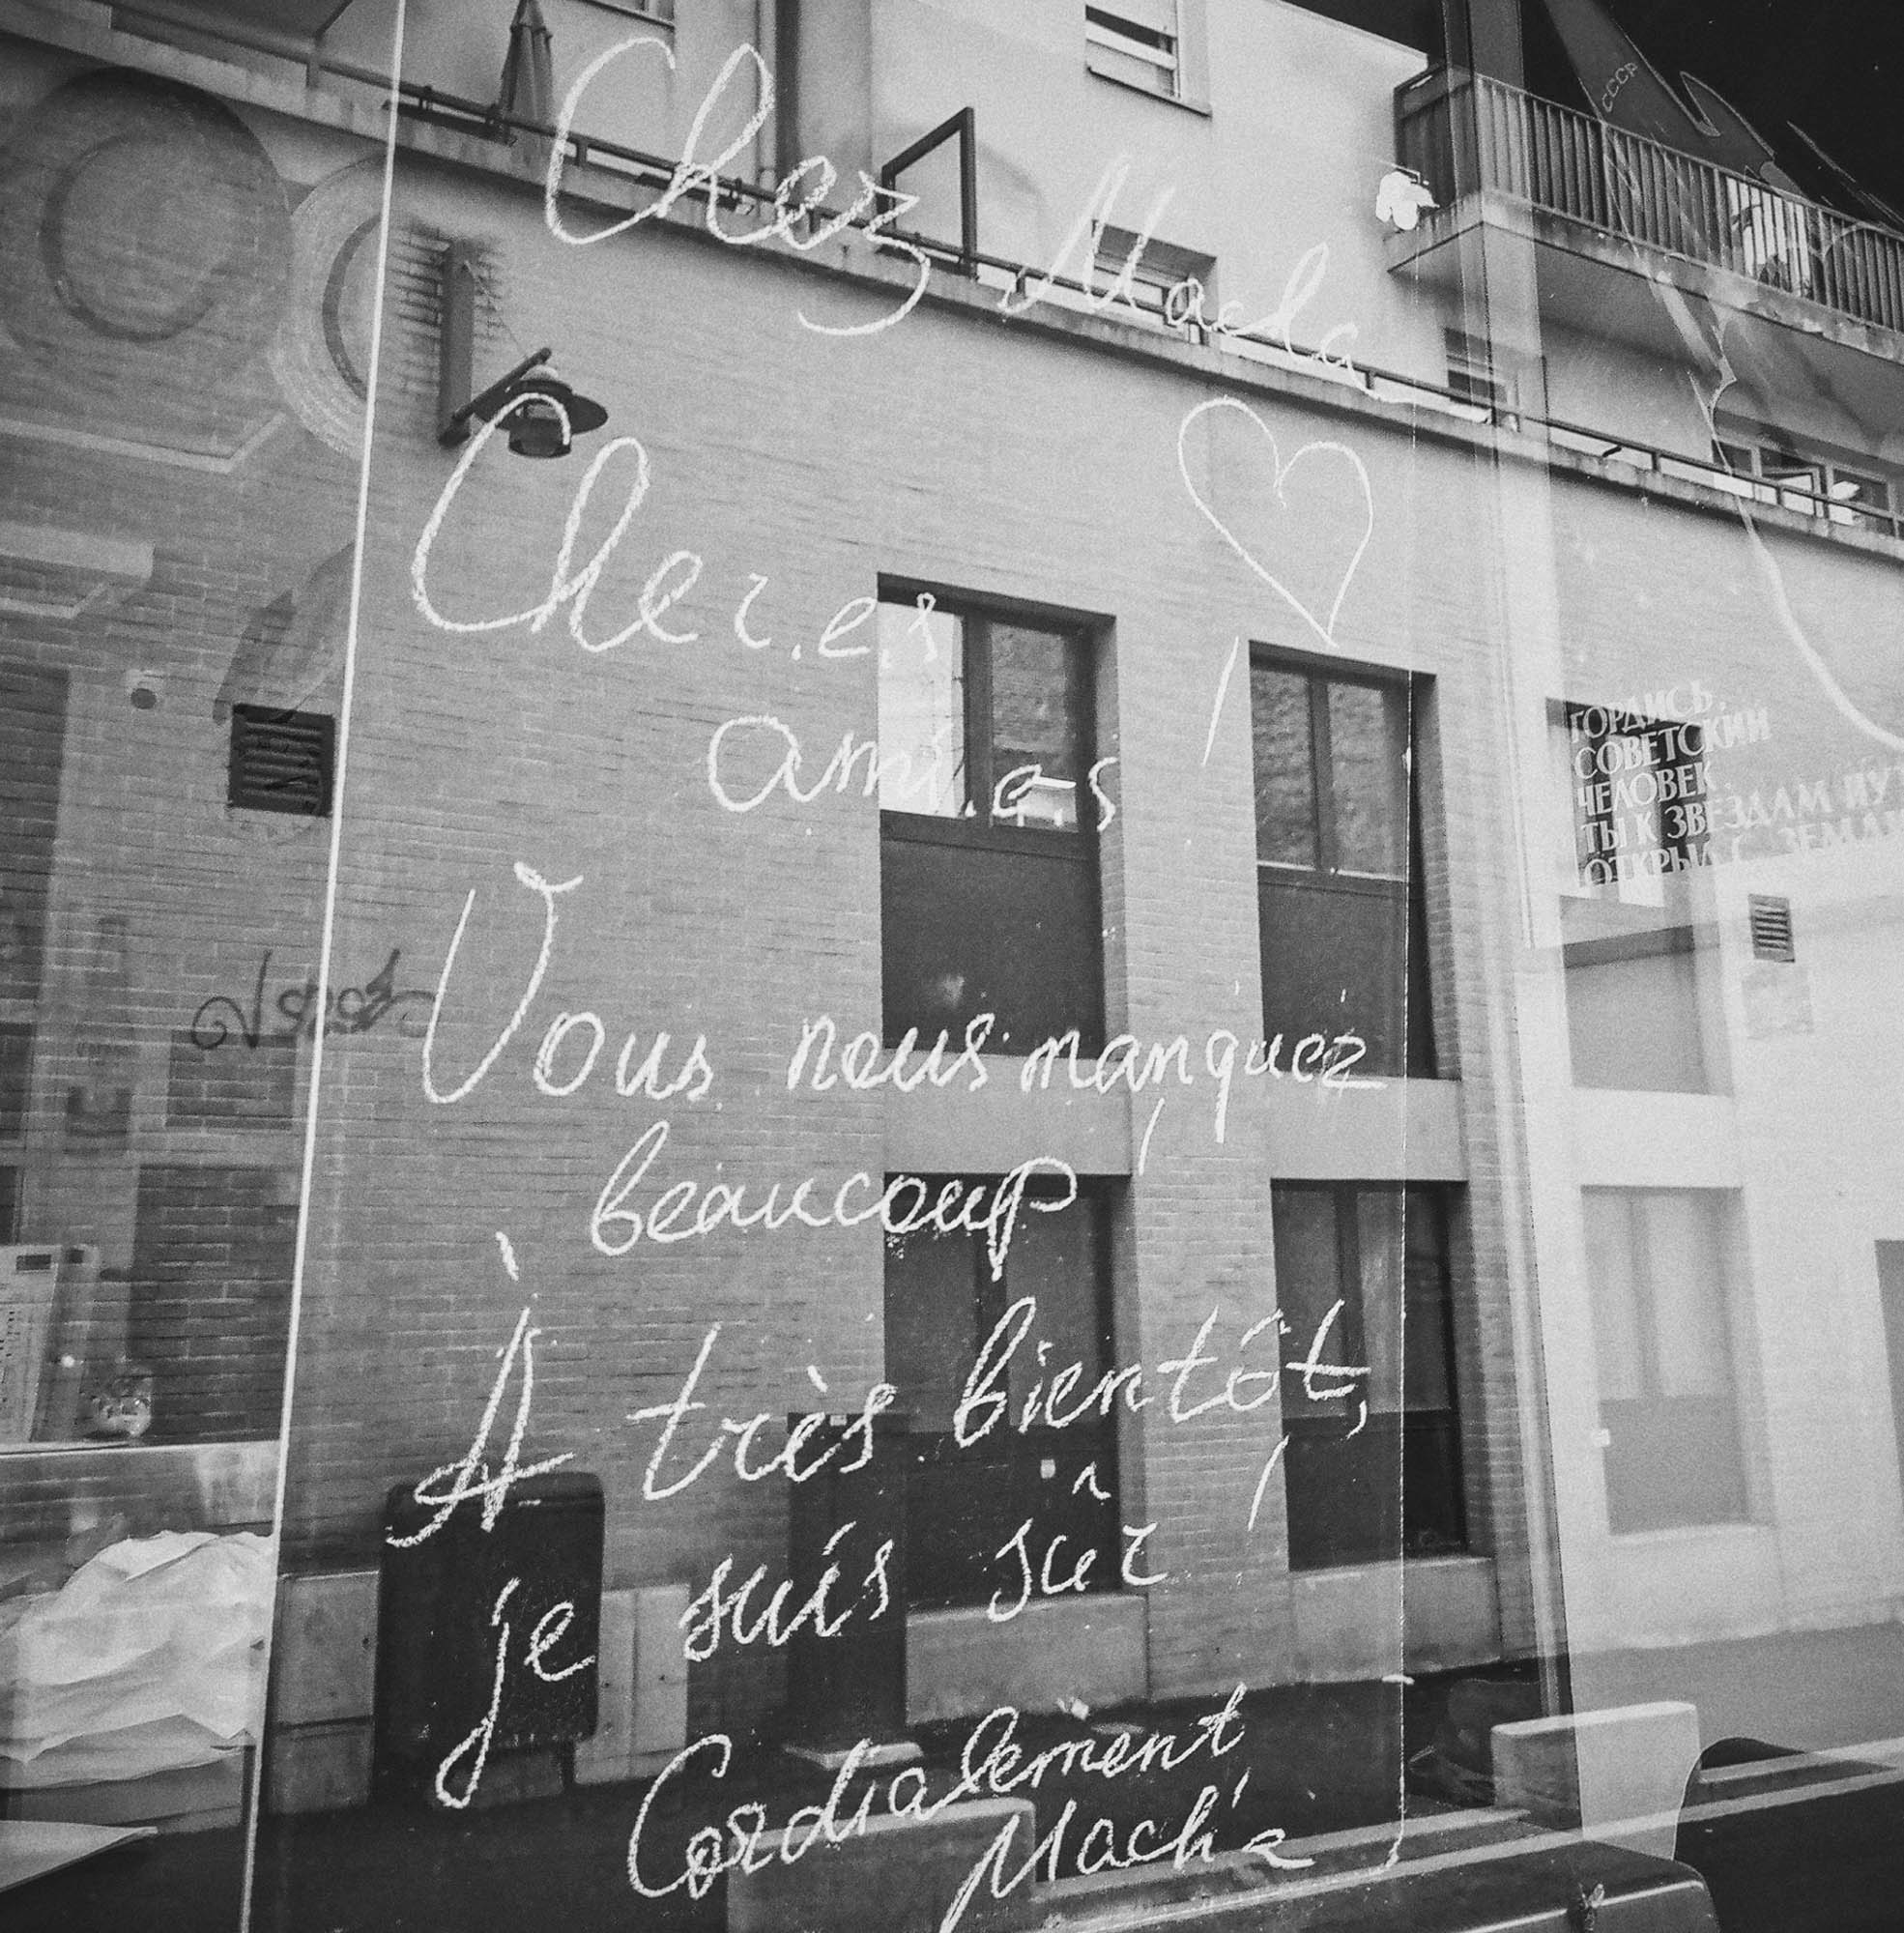 CCCP
Chez Macha
Cher.es
ami.e.s
Vous nous manquez
beaucoup !
À très bientôt,
je suis sûr !
Cordialement
Macha
ГОРДИСЬ,
СОВЕТСКИЙ
ЧЕЛОВЕК,
ТЫ К ЗВЕЗДАМ ПУ
ОТКРЫЛ С ЗЕМЛ